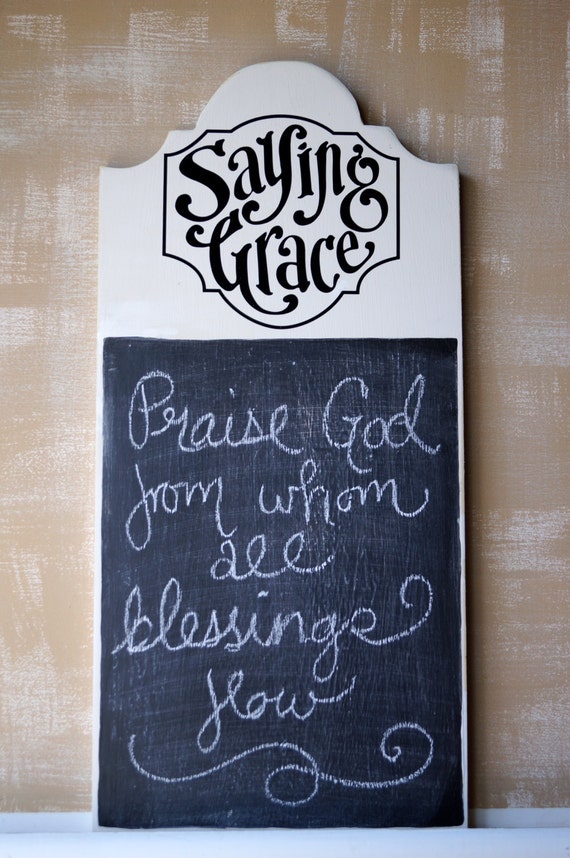 Saying
Grace
Praise God
from whom
all
blessings
flow